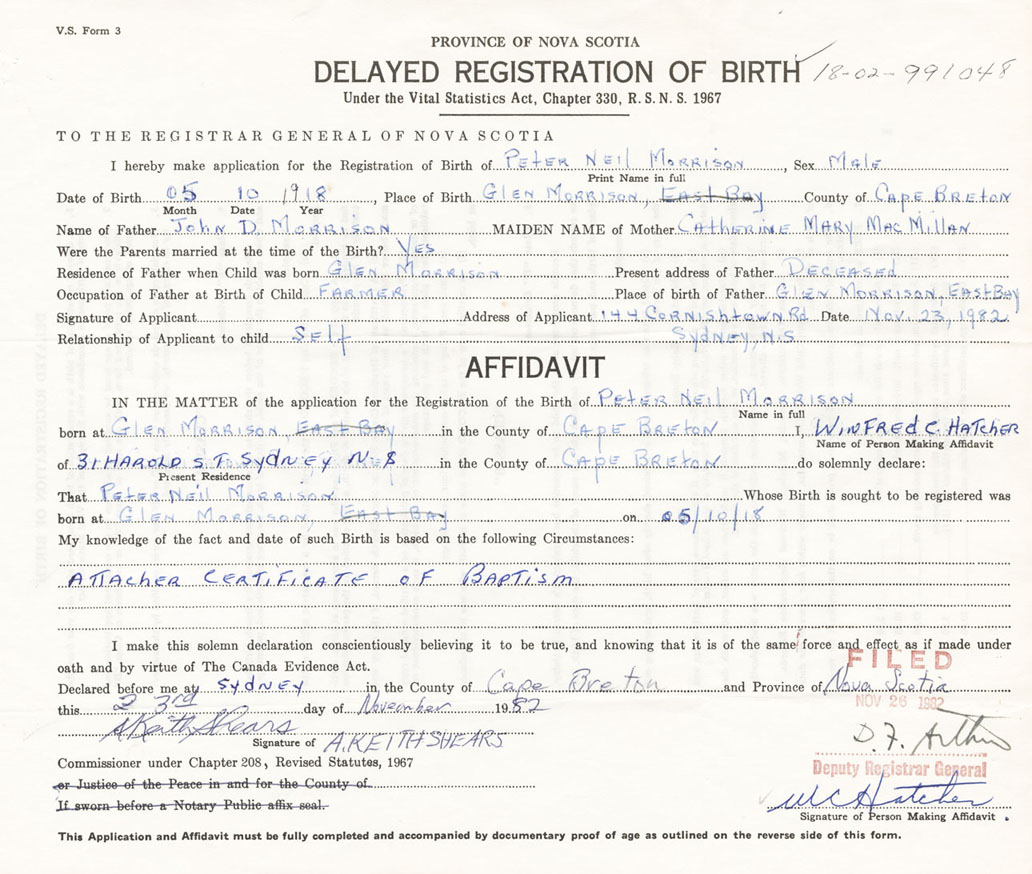 V.S. Form 3
PROVINCE OF NOVA SCOTIA
DELAYED REGISTRATION OF BIRTH 18-02-991048
Under the Vital Statistics Act, Chapter 330, R. S. N. S. 1967
TO THE REGISTRAR GENERAL OF NOVA SCOTIA
I hereby make application for the Registration of Birth of Peter Neil Morrison, Sex Male
Print Name in full
Date of Birth 05 10 1918, Place of Birth Glen Morrison, East Bay County of Cape Breton
Month Date Year
Name of Father John D. Morrison MAIDEN NAME of Mother Catherine Mary MacMillan
Were the Parents married at the time of the Birth? Yes
Residence of Father when Child was born Glen Morrison Present address of Father Deceased
Occupation of Father at Birth of Child Farmer Place of birth of Father Glen Morrison, East Bay
Signature of Applicant Address of Applicant 144 Cornishtown Rd Date Nov. 23, 1982
Relationship of Applicant to child Self Sydney, N.S
AFFIDAVIT
IN THE MATTER of the application for the Registration of the Birth of Peter Neil Morrison
Name in full
born at Glen Morrison, East Bay in the County of Cape Breton I, Winfred C. Hatcher
Name of Person Making Affidavit
of 31 Harold ST. Sydney N.S in the County of Cape Breton do solemnly declare:
Present Residence
That Peter Neil Morrison Whose Birth is sought to be registered was
born at Glen Morrison, East Bay on 05/10/18
My knowledge of the fact and date of such Birth is based on the following Circumstances:
Attacher Certificate of Baptism
I make this solemn declaration conscientiously believing it to be true, and knowing that it is of the same force and effect as if made under
oath and by virtue of The Canada Evidence Act.
FILED
Declared before me at Sydney in the County of Cape Breton and Province of Nova Scotia
NOV 26 1982
this 23rd day of November 1982
A Keith Shears
Signature of A. KEITH SHEARS
D. F. Arthur
Commissioner under Chapter 208, Revised Statutes, 1967
Deputy Registrar General
or Justice of the Peace in and for the County of
If sworn before a Notary Public affix seal.
WC Hatcher
Signature of Person Making Affidavit
This Application and Affidavit must be fully completed and accompanied by documentary proof of age as outlined on the reverse side of this form.